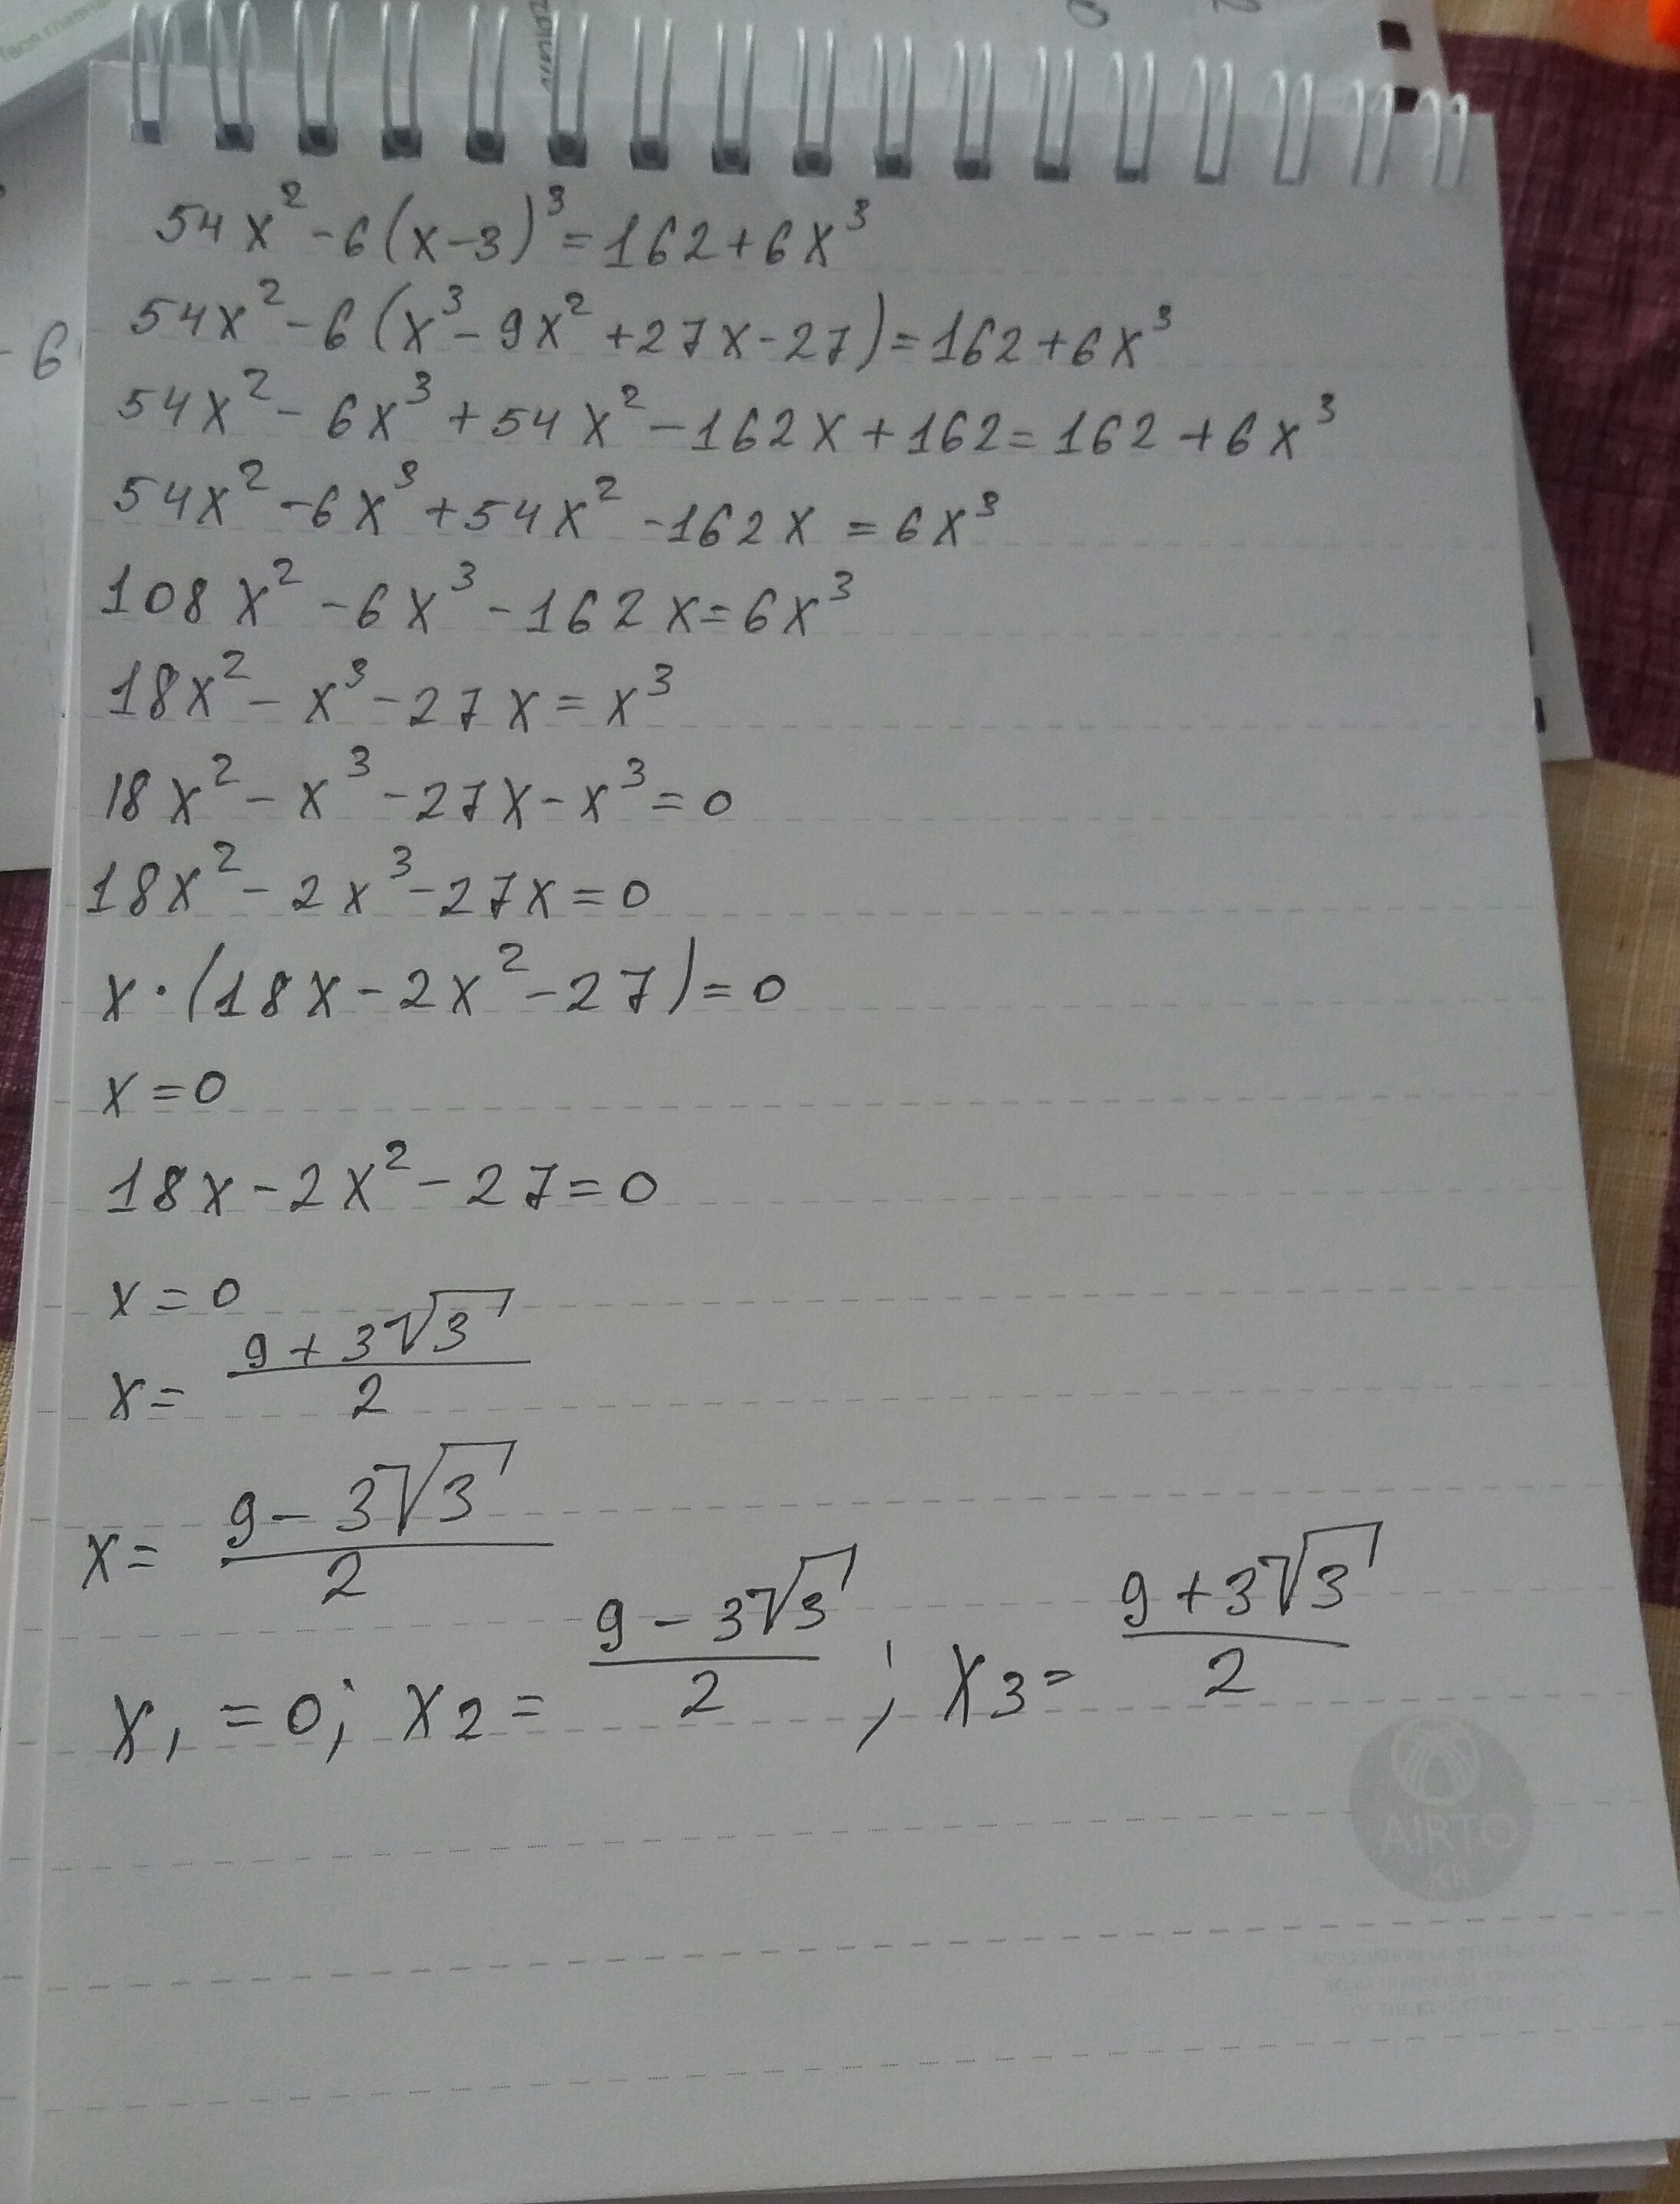 54x² - 6(x-3)³ = 162 + 6x³
54x² - 6(x³ - 9x² + 27x - 27) = 162 + 6x³
54x² - 6x³ + 54x² - 162x + 162 = 162 + 6x³
54x² - 6x³ + 54x² - 162x = 6x³
108x² - 6x³ - 162x = 6x³
18x² - x³ - 27x = x³
18x² - x³ - 27x - x³ = 0
18x² - 2x³ - 27x = 0
x · (18x - 2x² - 27) = 0
x = 0
18x - 2x² - 27 = 0
x = 0
x = (9 + 3√3)/2
x = (9 - 3√3)/2
x₁ = 0; x₂ = (9 - 3√3)/2 ; x₃ = (9 + 3√3)/2
AIRTO
KR
- 6